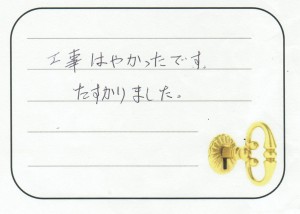 工事はやかったです。
たすかりました。